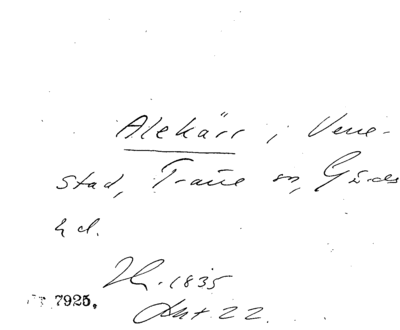 Alekärr i Vene-
stad, Trane sn, Gärds
hd.
1835
22.
7925.